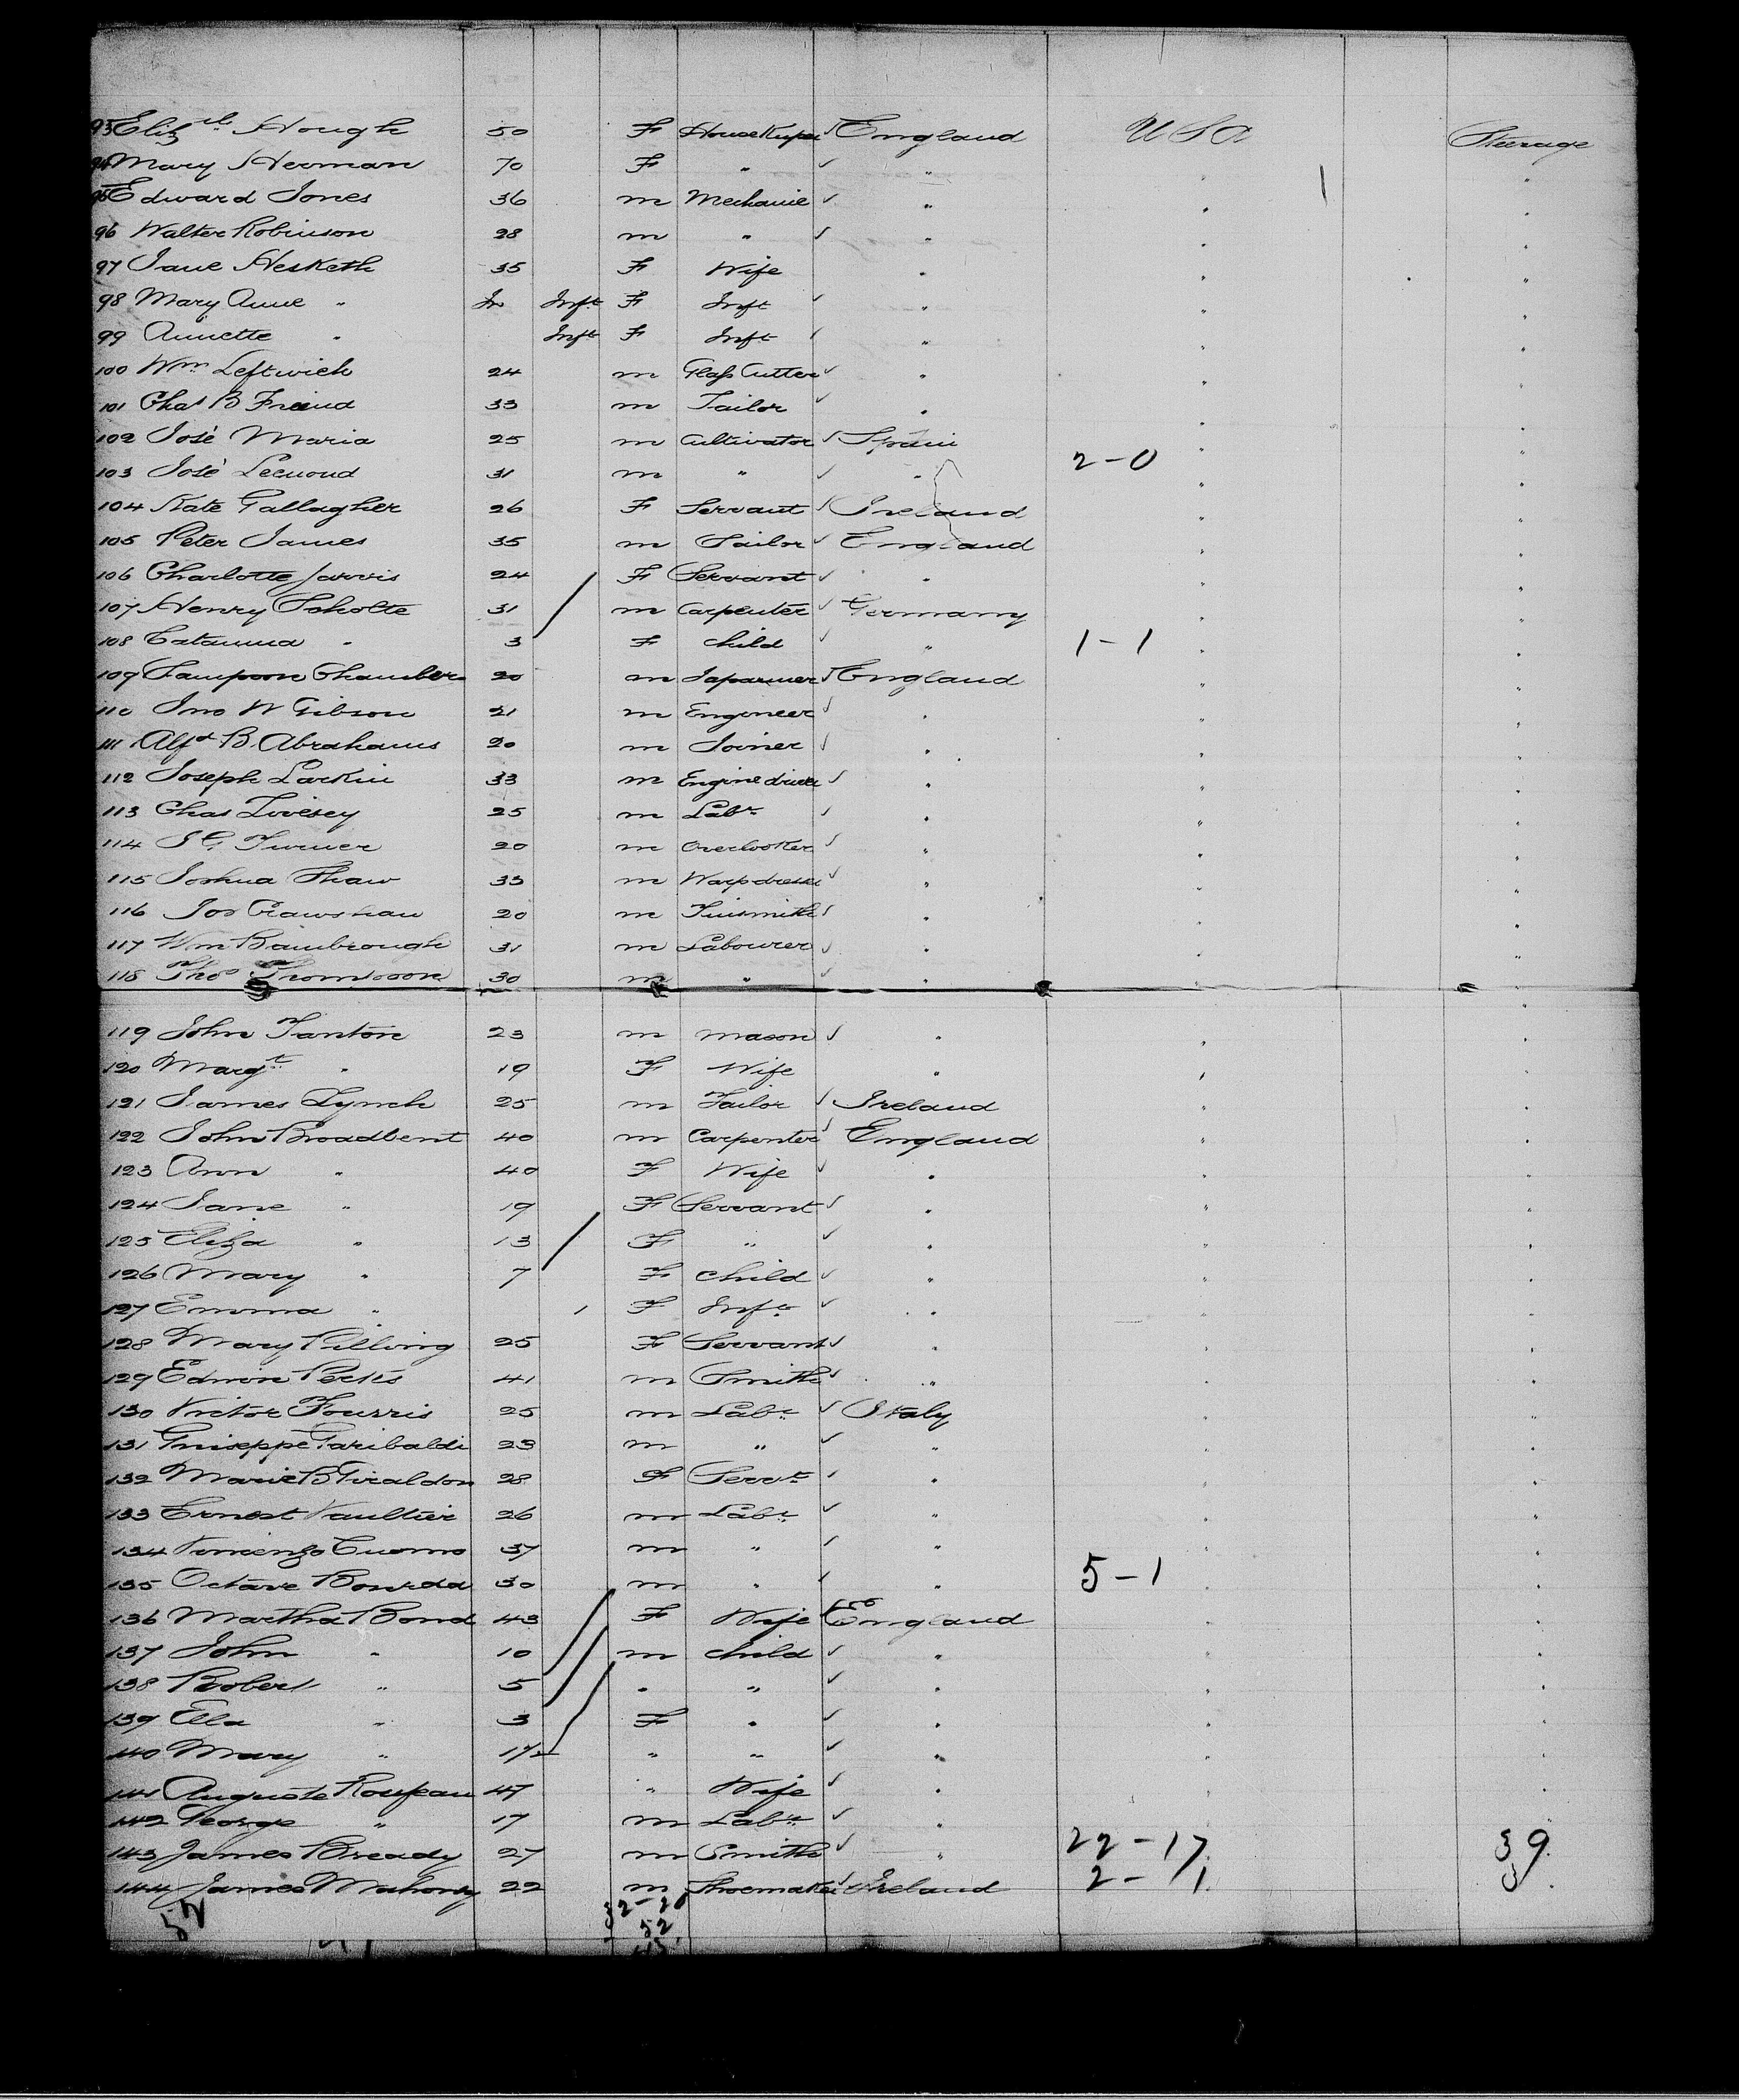 93 Elizth Hough 50 F House Keeper ✓ England U S A Steerage
94 Mary Heoman 70 F " ✓ " " "
95 Edward Jones 36 m Mechanic ✓ " " "
96 Walter Robinson 28 m " ✓ " " "
97 Jane Hesketh 35 F Wife " " "
98 Mary Anne " In Inft F Inft ✓ " " "
99 Annette " Inft F Inft ✓ " " "
100 Wm Leftwich 24 m Glass Cutter ✓ " " "
101 Chas B Freind 33 m Tailor ✓ " " "
102 José Maria 25 m Cultivator ✓ Spain " "
103 José Lecuond 31 m " ✓ " 2-0 " "
104 Kate Gallagher 26 F Servant ✓ Ireland " "
105 Peter James 35 m Sailor ✓ England " "
106 Charlotte Jarvis 24 F Servant ✓ " " "
107 Henry Scholte 31 m Carpenter ✓ Germany " "
108 Catarina " 3 F Child ✓ " 1-1 " "
109 Sampson Chambers 20 m Japanner ✓ England " "
110 Jno W Gibson 21 m Engineer ✓ " " "
111 Alfd B. Abrahams 20 m Joiner ✓ " " "
112 Joseph Larkin 33 m Engine driver ✓ " " "
113 Chas Livesey 25 m Labr ✓ " " "
114 J G Turner 20 m Overlooker ✓ " " "
115 Joshua Shaw 33 m Warpdresser ✓ " " "
116 Jos Crawshaw 20 m Tinsmith ✓ " " "
117 Wm Bambrough 31 m Labourer ✓ " " "
118 Thos Thomson 30 m " ✓ " " "
119 John Tanton 23 m mason ✓ " " "
120 Margt " 19 F Wife " " "
121 James Lynch 25 m Tailor ✓ Ireland " "
122 John Broadbent 40 m Carpenter ✓ England " "
123 Ann " 40 F Wife ✓ " " "
124 Jane " 19 F Servant ✓ " " "
125 Eliza " 13 F " ✓ " " "
126 Mary " 7 F Child ✓ " " "
127 Emma " 1 F Inft ✓ " " "
128 Mary Pilling 25 F Servant ✓ " " "
129 Edwin Perks 41 m Smith ✓ " " "
130 Victor Fourris 25 m Labr ✓ Italy " "
131 Guiseppe Garibaldi 23 m " ✓ " " "
132 Marie B Giraldon 28 F Servt ✓ " " "
133 Ernest Vaultier 26 m Labr ✓ " " "
134 Vincenzo Cuomo 37 m " ✓ " " "
135 Octave Bourdd 30 m " ✓ " 5-1 " "
136 Martha Bond 43 F Wife ✓ England " "
137 John " 10 m Child ✓ " " "
138 Robert " 5 " " ✓ " " "
139 Ella " 3 F " ✓ " " "
140 Mary " 1½ " " ✓ " " "
141 Auguste Roupeau 47 " Wife ✓ " " "
142 George " 17 m Labr ✓ " " "
143 James Bready 27 m Smith ✓ " 22-17 39
144 James Mahony 22 m Shoemaker ✓ Ireland 2-1
52 32-20
52